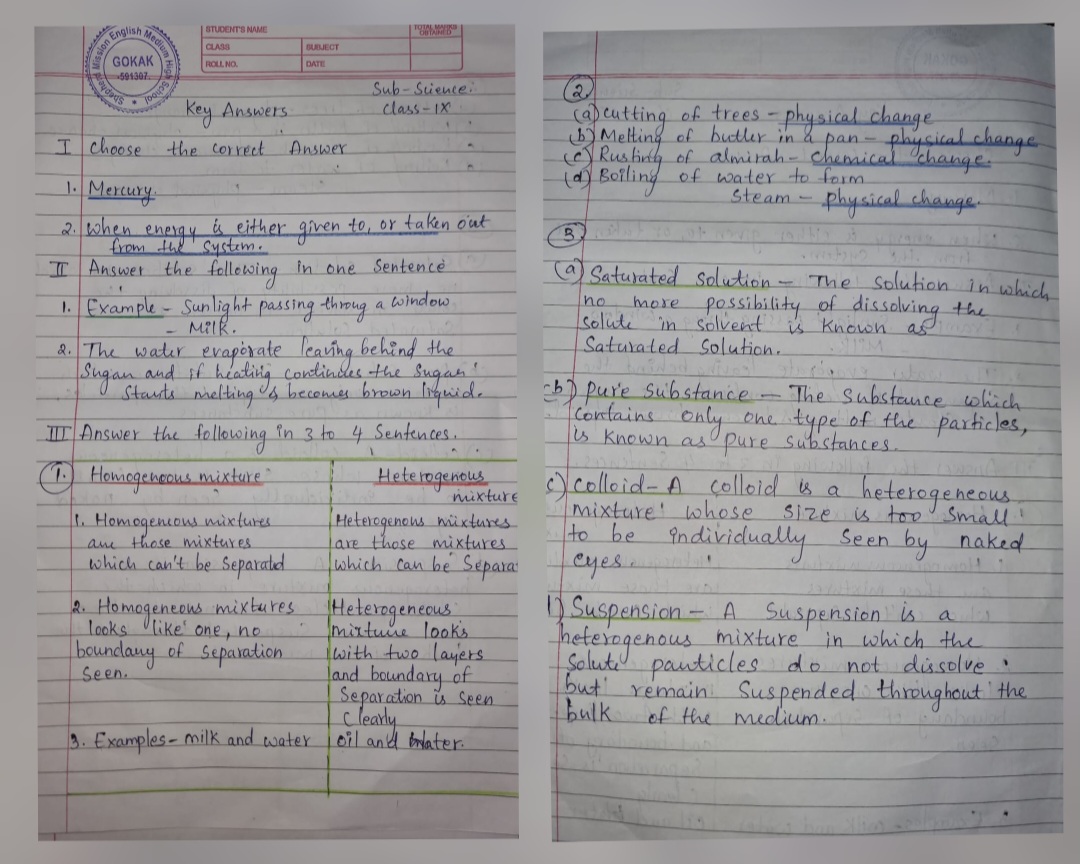 Shepherd Mission English Medium High School
GOKAK
-591307.
STUDENT'S NAME
TOTAL MARKS OBTAINED
CLASS
SUBJECT
ROLL NO.
DATE
Sub-Science:
Key Answers
Class-IX
I Choose the correct Answer
1. Mercury.
2. when energy is either given to, or taken out
from the system.
II Answer the following in one Sentence
1. Example - Sunlight passing throug a window
- Milk.
2. The water evaporate leaving behind the
Sugar and if heating continues the Sugar
Starts melting & becomes brown liquid.
III Answer the following in 3 to 4 Sentences.
1. Homogeneous mixture
Heterogenous
mixture
1. Homogeneous mixtures
are those mixtures
which can't be Separated
Heterogenous mixtures
are those mixtures
which can be Separa
2. Homogeneous mixtures
looks like one, no
boundary of Separation
Seen.
Heterogeneous
mixture looks
with two layers
and boundary of
Separation is seen
Clearly
3. Examples- milk and water
oil and water.
2
(a) cutting of trees - physical change
(b) Melting of butter in a pan - physical change
(c) Rusting of almirah - chemical change.
(d) Boiling of water to form
Steam - physical change.
3
(a) Saturated Solution - The solution in which
no more possibility of dissolving the
solute in solvent is Known as
Saturated Solution.
b) pure substance - The Substance which
contains only one type of the particles,
is known as pure substances.
c) colloid - A colloid is a heterogeneous
mixture whose size is too small
to be individually Seen by naked
eyes.
) Suspension - A Suspension is a
heterogenous mixture in which the
Solute particles do not dissolve
but remain Suspended throughout the
bulk of the medium.